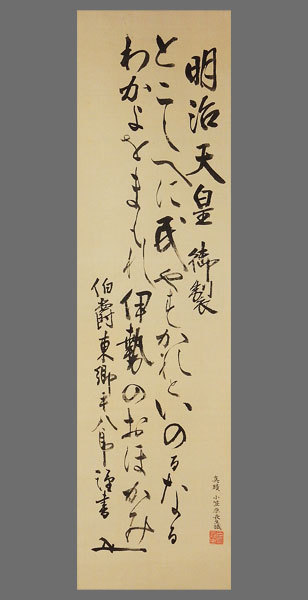 明治天皇御製
とこしへに民やすかれといのるなる
わかよをまもれ伊勢のおほかみ
伯爵東郷平八郎謹書
真蹟 小笠原長生識